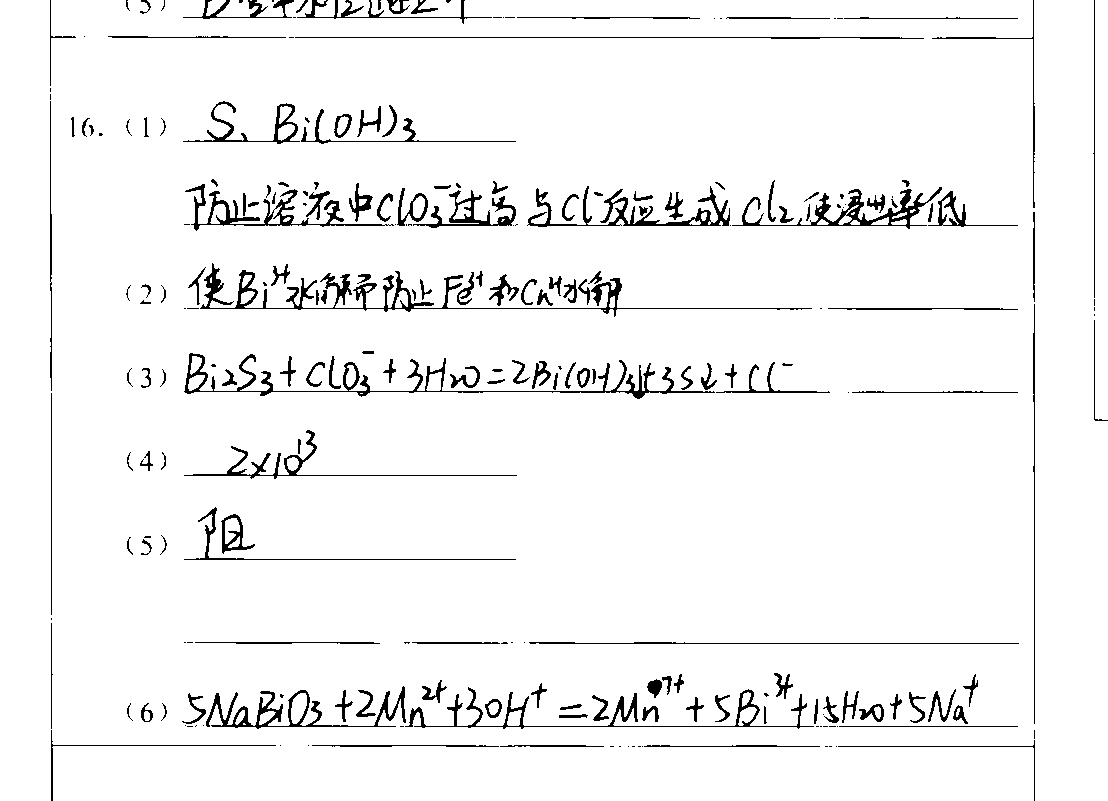 (5)
16. (1) S、Bi(OH)₃
防止溶液中ClO₃⁻过高与Cl⁻反应生成Cl₂,使浸出率低
(2) 使Bi³⁺水解而防止Fe³⁺和Cu²⁺水解
(3) Bi₂S₃+ClO₃⁻+3H₂O=2Bi(OH)₃↓+3S↓+Cl⁻
(4) 2×10¹³
(5) 阳
(6) 5NaBiO₃+2Mn²⁺+30H⁺=2Mn⁷⁺+5Bi³⁺+15H₂O+5Na⁺